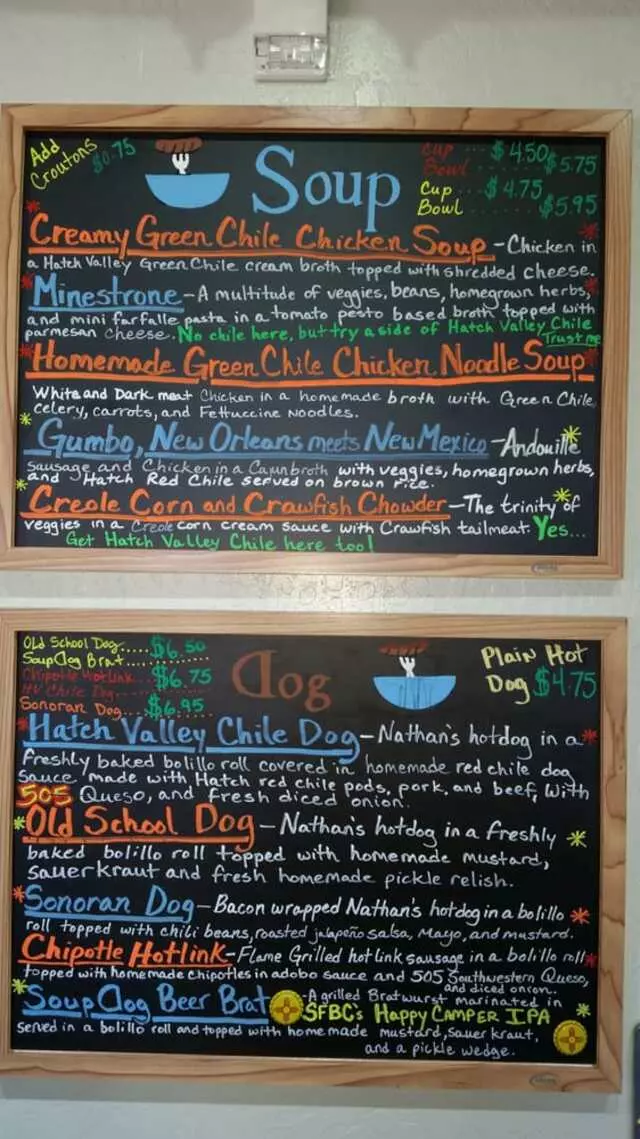 Add
Croutons $0.75
Soup
Cup ... $4.50
Bowl ...... $5.75
Cup ... $4.75
Bowl ....... $5.95
Creamy Green Chile Chicken Soup - Chicken in
a Hatch Valley Green Chile cream broth topped with shredded cheese.
Minestrone - A multitude of veggies, beans, homegrown herbs,
and mini farfalle pasta in a tomato pesto based broth topped with
parmesan cheese. No chile here, but try a side of Hatch Valley Chile
Trust me
Homemade Green Chile Chicken Noodle Soup
White and Dark meat Chicken in a homemade broth with Green Chile,
celery, carrots, and Fettuccine Noodles.
Gumbo, New Orleans meets New Mexico - Andouille
Sausage and Chicken in a Cajun broth with veggies, homegrown herbs,
and Hatch Red Chile served on brown rice.
Creole Corn and Crawfish Chowder - The trinity of
veggies in a Creole corn cream sauce with Crawfish tailmeat. Yes...
Get Hatch Valley Chile here too!
Old School Dog.... $6.50
SoupDog Brat..............
Chipotle Hotlink... $6.75
HV Chile Dog..............
Sonoran Dog.... $6.95
Dog
Plain Hot
Dog $4.75
Hatch Valley Chile Dog - Nathan's hotdog in a
freshly baked bolillo roll covered in homemade red chile dog
sauce made with Hatch red chile pods, pork, and beef, with
505 Queso, and fresh diced onion.
Old School Dog - Nathan's hotdog in a freshly
baked bolillo roll topped with homemade mustard,
sauerkraut and fresh homemade pickle relish.
Sonoran Dog - Bacon wrapped Nathan's hotdog in a bolillo
roll topped with chili beans, roasted jalapeño salsa, Mayo, and mustard.
Chipotle Hotlink - Flame Grilled hot link sausage in a bolillo roll
topped with homemade chipotles in adobo sauce and 505 Southwestern Queso,
and diced onion.
SoupDog Beer Brat - A grilled Bratwurst marinated in
SFBC's Happy Camper IPA
served in a bolillo roll and topped with homemade mustard, sauer kraut,
and a pickle wedge.